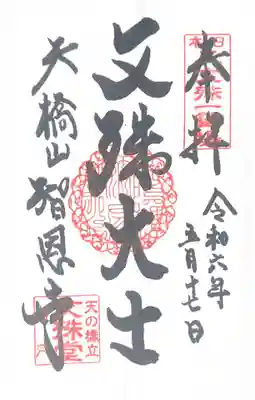 奉拝
令和六年
五月十七日
文殊大士
天橋山智恩寺
天の橋立
文殊堂